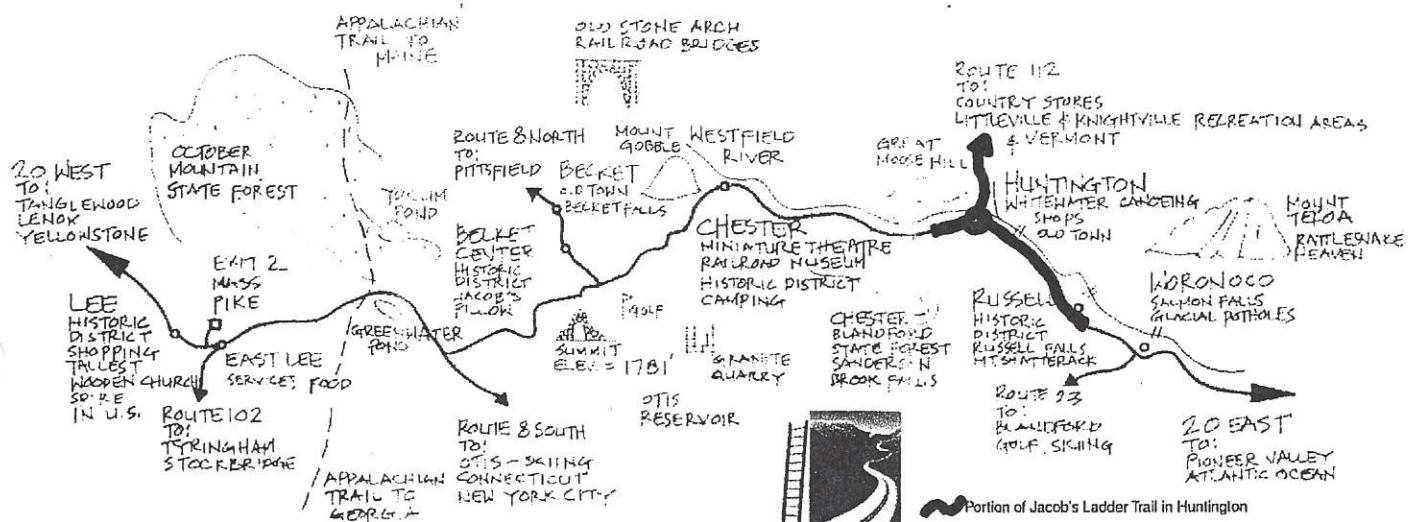 APPALACHIAN
TRAIL TO
MAINE
OLD STONE ARCH
RAILROAD BRIDGES
ROUTE 112
TO:
COUNTRY STORES
LITTLEVILLE & KNIGHTVILLE RECREATION AREAS
& VERMONT
20 WEST
TO:
TANGLEWOOD
LENOX
YELLOWSTONE
OCTOBER
MOUNTAIN
STATE FOREST
ROUTE 8 NORTH
TO:
PITTSFIELD
BECKET
OLD TOWN
BECKET FALLS
MOUNT
GOBBLE
WESTFIELD
RIVER
GREAT
MOOSE HILL
HUNTINGTON
WHITEWATER CANOEING
SHOPS
OLD TOWN
MOUNT
TEKOA
RATTLESNAKE
HEAVEN
POND
EXIT 2
MASS
PIKE
BECKET
CENTER
HISTORIC
DISTRICT
JACOB'S
PILLOW
CHESTER
MINIATURE THEATRE
RAILROAD MUSEUM
HISTORIC DISTRICT
CAMPING
WORONOCO
SALMON FALLS
GLACIAL POTHOLES
LEE
HISTORIC
DISTRICT
SHOPPING
TALLEST
WOODEN CHURCH
SPIRE
IN U.S.
EAST LEE
SERVICES, FOOD
GREENWATER
POND
GOLF
SUMMIT
ELEV. = 1781'
GRANITE
QUARRY
CHESTER
BLANDFORD
STATE FOREST
SANDERSON
BROOK FALLS
RUSSELL
HISTORIC
DISTRICT
RUSSELL FALLS
MT. SHATTERACK
ROUTE 102
TO:
TYRINGHAM
STOCKBRIDGE
APPALACHIAN
TRAIL TO
GEORGIA
ROUTE 8 SOUTH
TO:
OTIS - SKIING
CONNECTICUT
NEW YORK CITY
OTIS
RESERVOIR
ROUTE 23
TO:
BLANDFORD
GOLF, SKIING
20 EAST
TO:
PIONEER VALLEY
ATLANTIC OCEAN
Portion of Jacob's Ladder Trail in Huntington